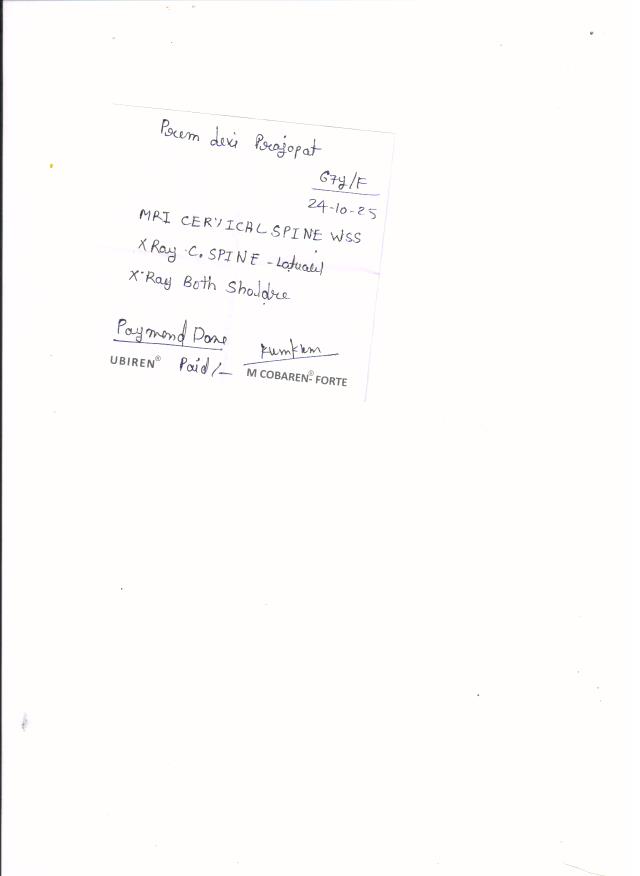 Prem devi Prajopat
67y/F
24-10-25
MRI CERVICAL SPINE WSS
X Ray C. SPINE - Latuall
X-Ray Both Sholdre
Paymend Done
Kumkum
UBIREN® Paid/-
M COBAREN®-FORTE